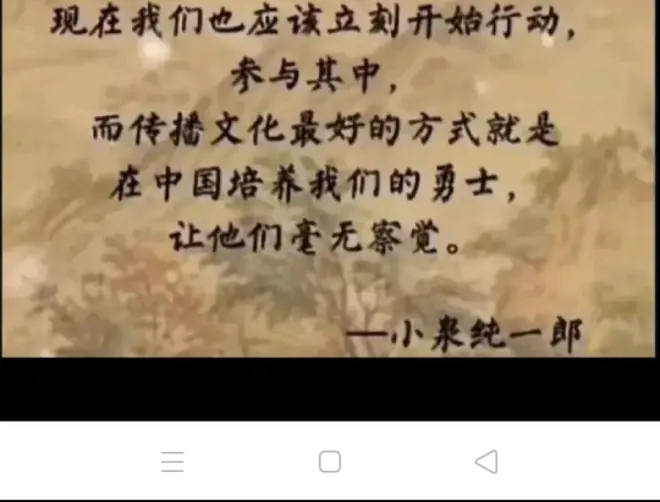 现在我们也应该立刻开始行动,
参与其中,
而传播文化最好的方式就是
在中国培养我们的勇士,
让他们毫无察觉。
—小泉纯一郎